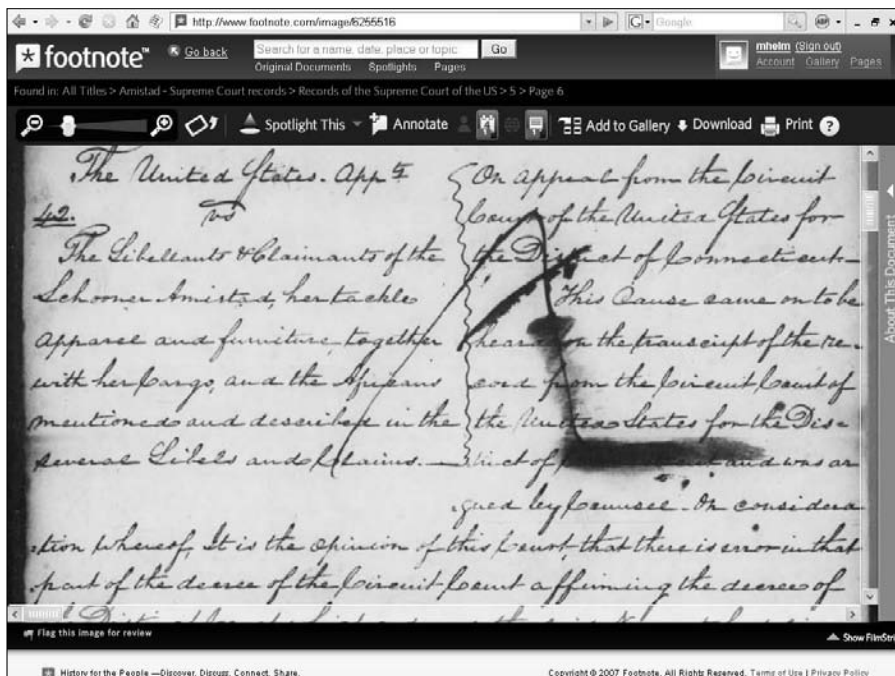 http://www.footnote.com/image/6255516
Google
footnote™
Go back
Search for a name, date, place or topic
Go
Original Documents Spotlights Pages
mhelm (Sign out)
Account Gallery Pages
Found in: All Titles > Amistad - Supreme Court records > Records of the Supreme Court of the US > 5 > Page 6
Spotlight This
Annotate
Add to Gallery
Download
Print
About This Document
The United States. Appt
42. vs
The Libellants & Claimants of the
Schooner Amistad, her tackle
apparel and furniture, together
with her Cargo, and the Africans
mentioned and described in the
several Libels and Claims.
On appeal from the Circuit
Court of the United States for
the District of Connecticut
This Cause came on to be
heard on the transcript of the re-
cord from the Circuit Court of
the United States for the Dis-
trict of and was ar
gued by Counsel. On considera
tion whereof, It is the opinion of this Court, that there is error in that
part of the decree of the Circuit Court affirming the decree of
Flag this image for review
Show FilmStri
History for the People —Discover. Discuss. Connect. Share.
Copyright © 2007 Footnote. All Rights Reserved. Terms of Use | Privacy Policy